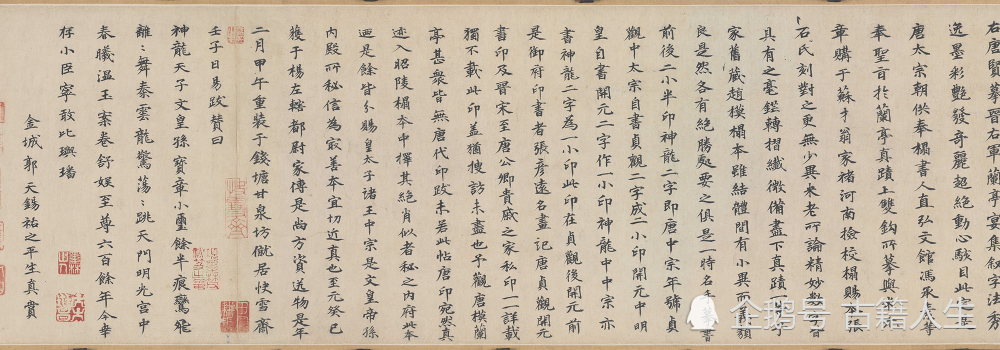 右唐賢摹晉右軍蘭亭宴集敘字法秀
逸墨彩艷發奇麗超絕動心駭目此定是
唐太宗朝供奉搨書人直弘文館馮承素等
奉聖旨於蘭亭真蹟上雙鉤所摹與米元
章購于蘇才翁家褚河南檢校搨賜本張
石氏刻對之更無少異米老所論精妙數字皆
具有之毫鋩轉摺纖微備盡下真蹟一等予
家舊藏趙模搨本雖結體間有小異而義類
良是然各有絕勝處要之俱是一時名手摹書
前後二小半印神龍二字即唐中宗年號貞
觀中太宗自書貞觀二字成二小印開元中明
皇自書開元二字作一小印神龍中中宗亦
書神龍二字為一小印此印在貞觀後開元前
是御府印書者張彥遠名畫記唐貞觀開元
書印及晋宋至唐公卿貴戚之家私印一一詳載
獨不載此印蓋猶搜訪未盡也予觀唐模蘭
亭甚衆皆無唐代印跋未若此帖唐印宛然真
迹入昭陵搨本中擇其絕肖似者秘之內府此本
迺是餘皆分賜皇太子諸王中宗是文皇帝孫
內殿所秘信為㝡善本宜切近真也至元癸巳
獲于楊左轄都尉家傳是尚方資送物是年
二月甲午重裝于錢塘甘泉坊僦居快雪齋
壬子日易跋贊曰
神龍天子文皇孫寶章小璽餘半痕鸞飛
離離舞秦雲龍驚蕩蕩跳天門明光宮中
春曦溫玉案卷舒娛至尊六百餘年今幸
存小臣寧敢比璵璠
金城郭天錫祐之平生真賞
企鹅号 古籍人生